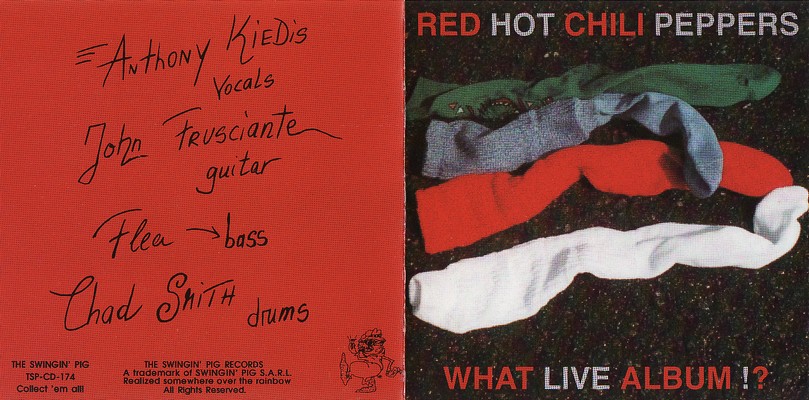 Anthony Kiedis
Vocals
John Frusciante
guitar
Flea → bass
Chad Smith drums
THE SWINGIN' PIG
TSP-CD-174
Collect 'em all!
THE SWINGIN' PIG RECORDS
A trademark of SWINGIN' PIG S.A.R.L.
Realized somewhere over the rainbow
All Rights Reserved.
RED HOT CHILI PEPPERS
WHAT LIVE ALBUM !?